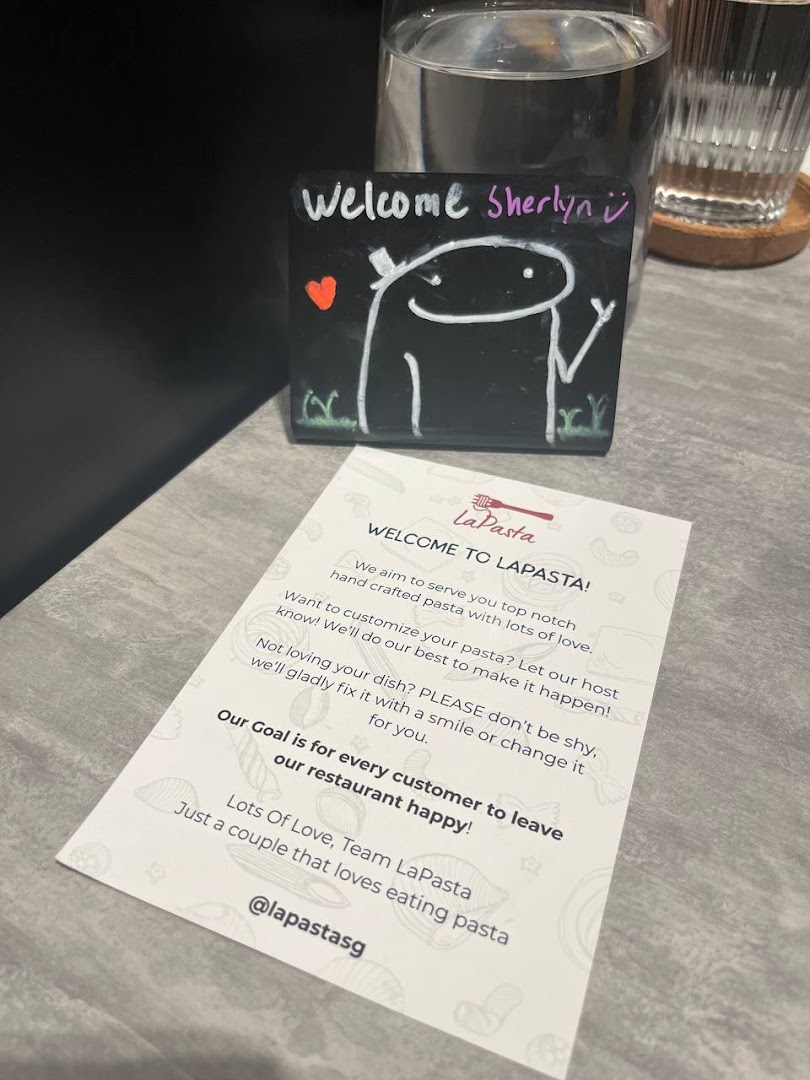 Welcome Sherlyn
LaPasta
WELCOME TO LAPASTA!
We aim to serve you top notch
hand crafted pasta with lots of love.
Want to customize your pasta? Let our host
know! We'll do our best to make it happen!
Not loving your dish? PLEASE don't be shy,
we'll gladly fix it with a smile or change it
for you.
Our Goal is for every customer to leave
our restaurant happy!
Lots Of Love, Team LaPasta
Just a couple that loves eating pasta
@lapastasg